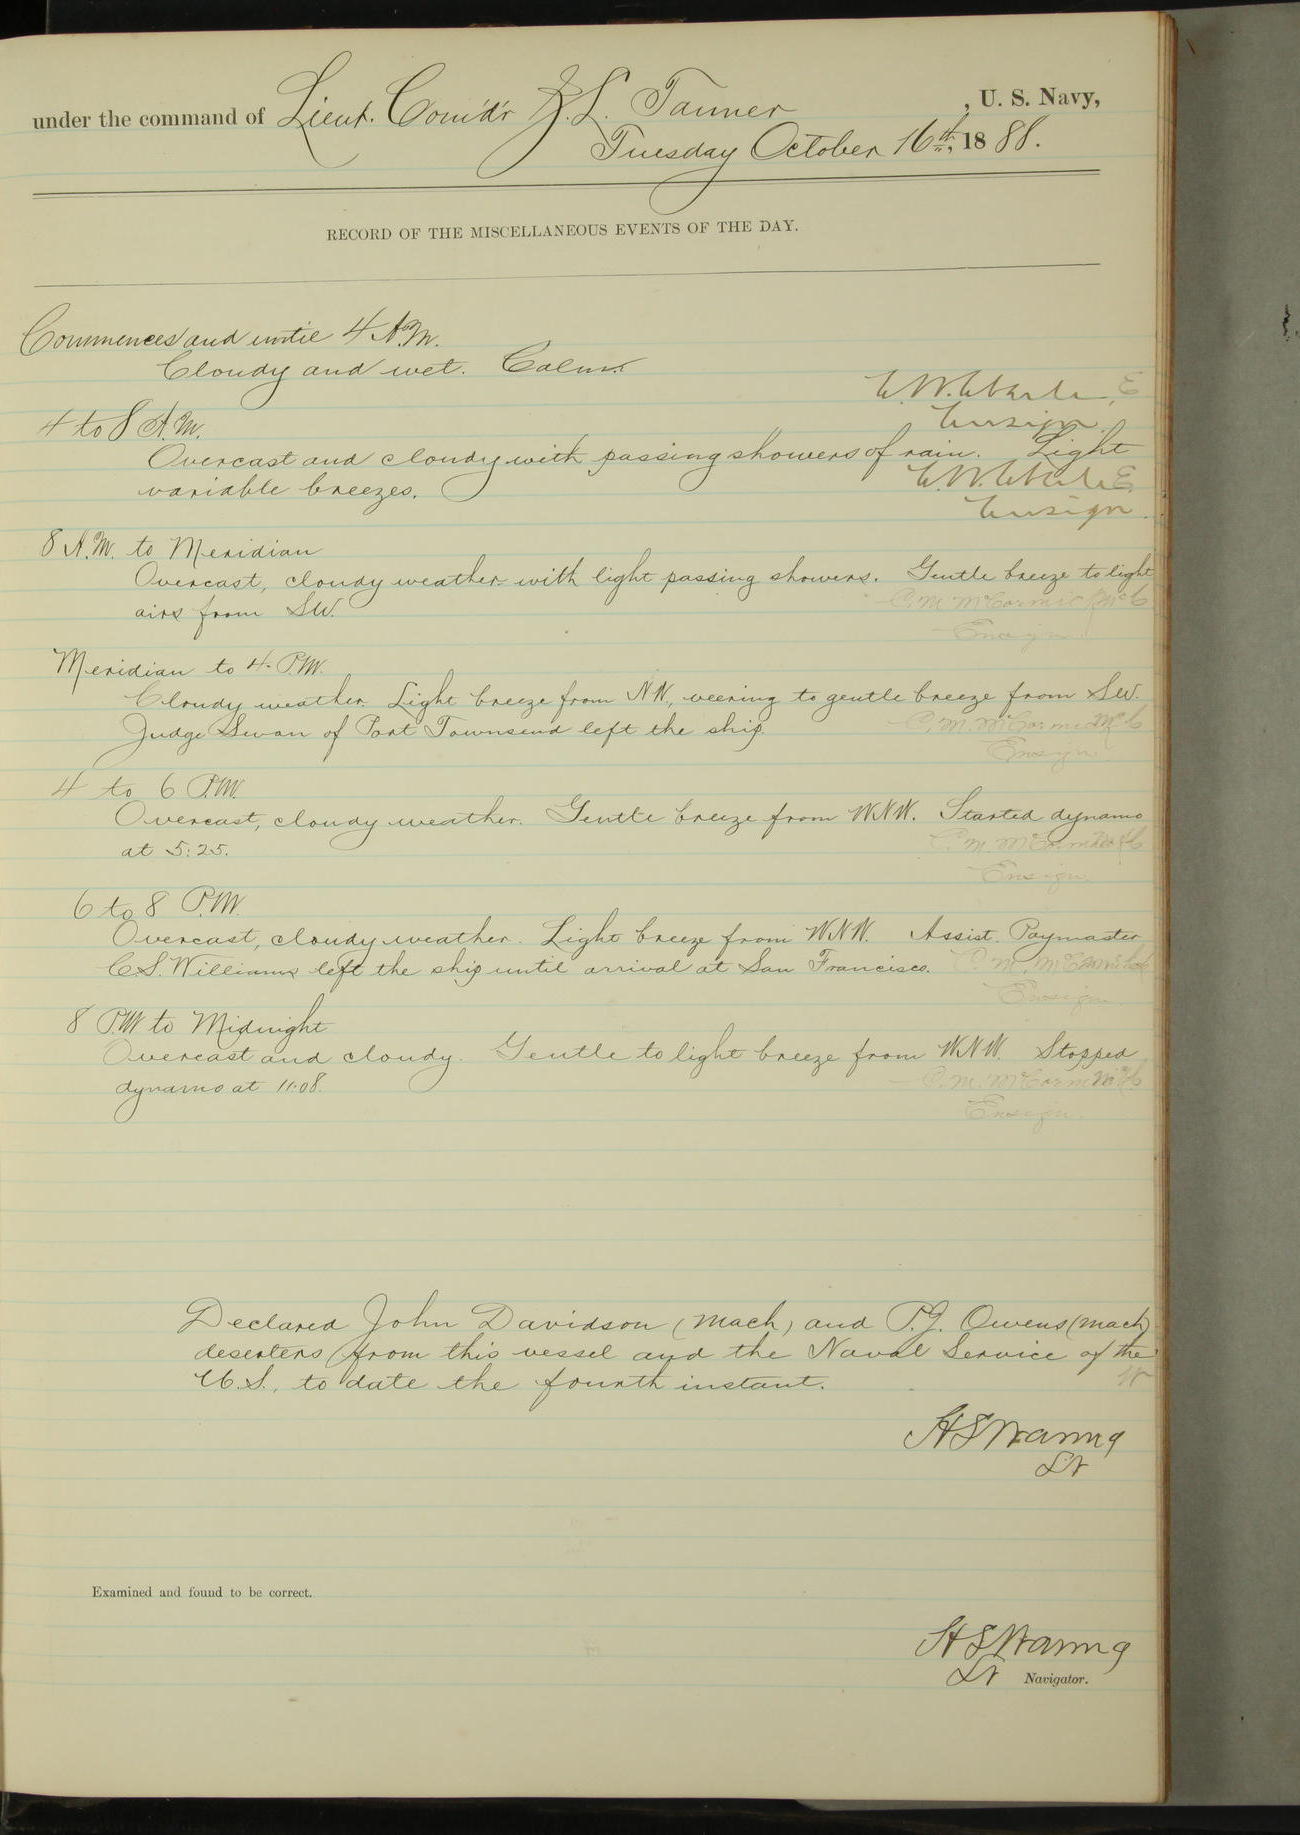 under the command of Lieut. Com'd'r Z. L. Tanner, U. S. Navy,
Tuesday October 16th, 1888.
RECORD OF THE MISCELLANEOUS EVENTS OF THE DAY.
Commences and until 4 A.M.
Cloudy and wet. Calm.
E. W. Eberle, E
Ensign.
4 to 8 A.M.
Overcast and cloudy with passing showers of rain. Light
variable breezes.
E. W. Eberle E.
Ensign.
8 A.M. to Meridian
Overcast, cloudy weather with light passing showers. Gentle breeze to light
airs from SW.
C. M. McCormick McC
Ensign.
Meridian to 4. P.M.
Cloudy weather. Light breeze from NW., veering to gentle breeze from SW.
Judge Swan of Port Townsend left the ship.
C. M. McCormick McC
Ensign
4 to 6 P.M.
Overcast, cloudy weather. Gentle breeze from WNW. Started dynamo
at 5:25.
C. M. McCormick McC
Ensign.
6 to 8 P.M.
Overcast, cloudy weather. Light breeze from WNW. Assist. Paymaster
C.S. Williams left the ship until arrival at San Francisco.
C. M. McCormick
Ensign.
8 P.M to Midnight
Overcast and cloudy. Gentle to light breeze from WNW. Stopped
dynamo at 11.08.
C. M. McCormick McC
Ensign.
Declared John Davidson (Mach) and P. J. Owens (Mach)
deserters from this vessel and the Naval Service of the
U.S., to date the fourth instant.
W
H S Waring
Lt
Examined and found to be correct.
H S Waring
Lt Navigator.